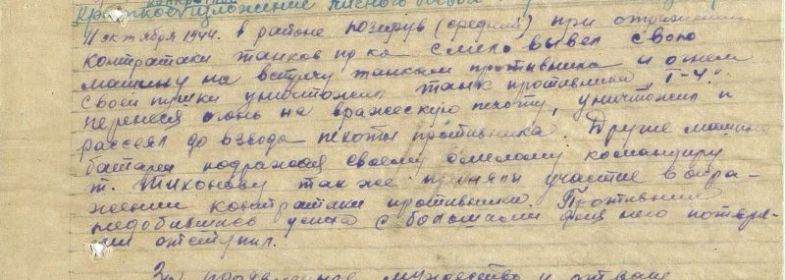 Краткое изложение личного боевого
11 октября 1944. в районе Позерув (средний) при отражении
контратаки танков пр-ка смело вывел свою
машину на встречу танкам противника и огнем
своей пушки уничтожил танк противника "Т-4".
перенеся огонь на вражескую пехоту, уничтожил и
рассеял до взвода пехоты противника. Другие машины
батареи подражая своему смелому командиру
т. Тихонову также приняли участие в отра-
жении контратаки противника. Противник
недобившись успеха с большими для него потеря-
ми отступил.
За проявленное мужество и отваге